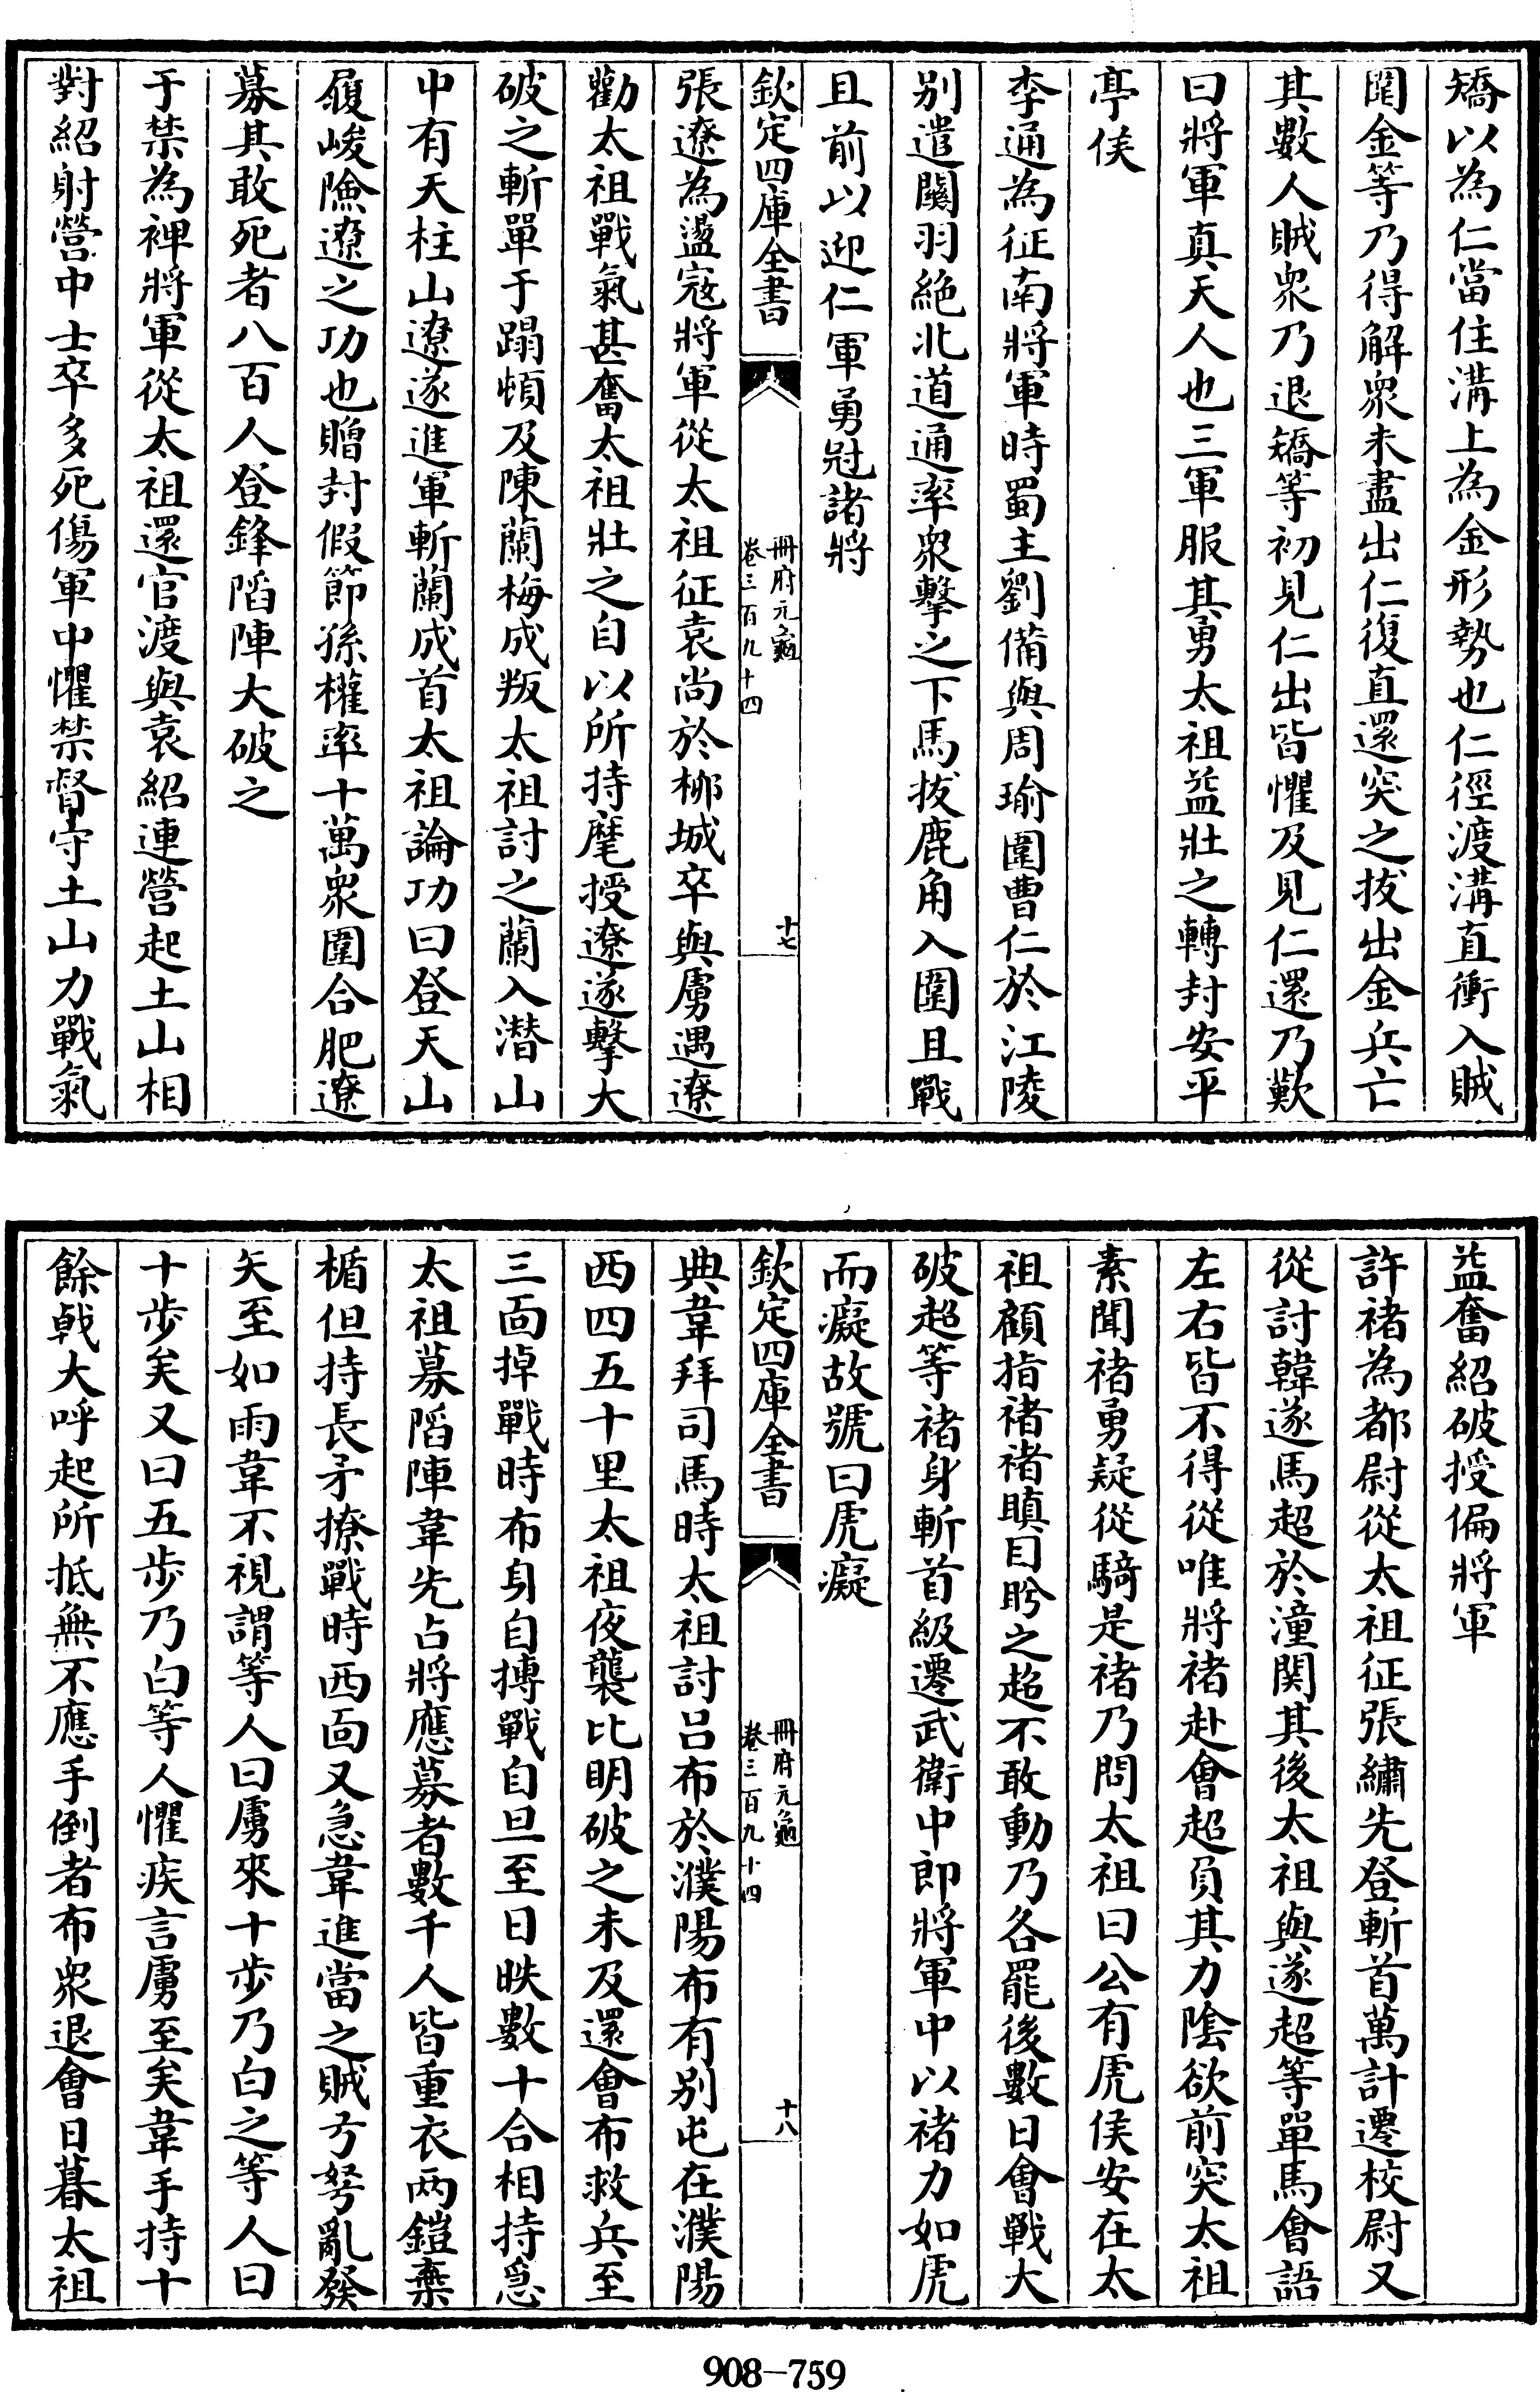 矯以為仁當住溝上為金形勢也仁徑渡溝直衝入賊
圍金等乃得解衆未盡出仁復直還突之拔出金兵亡
其數人賊衆乃退矯等初見仁出皆懼及見仁還乃歎
曰將軍真天人也三軍服其勇太祖益壯之轉封安平
亭侯
李通為征南將軍時蜀主劉備與周瑜圍曹仁於江陵
别遣關羽絶北道通率衆擊之下馬拔鹿角入圍且戰
且前以迎仁軍勇冠諸將
欽定四庫全書
冊府元龜
卷三百九十四
十七
張遼為盪寇將軍從太祖征袁尚於桺城卒與虜遇遼
勸太祖戰氣甚奮太祖壯之自以所持麾授遼遂擊大
破之斬單于蹋頓及陳蘭梅成叛太祖討之蘭入潛山
中有天柱山遼遂進軍斬蘭成首太祖論功曰登天山
履峻險遼之功也贈封假節孫權率十萬衆圍合肥遼
募其敢死者八百人登鋒陷陣大破之
于禁為裨將軍從太祖還官渡與袁紹連營起土山相
對紹射營中士卒多死傷軍中懼禁督守土山力戰氣
益奮紹破授偏將軍
許褚為都尉從太祖征張繡先登斬首萬計遷校尉又
從討韓遂馬超於潼関其後太祖與遂超等單馬會語
左右皆不得從唯將褚赴會超負其力陰欲前突太祖
素聞褚勇疑從騎是褚乃問太祖曰公有虎侯安在太
祖顧指褚褚瞋目盻之超不敢動乃各罷後數日會戰大
破超等褚身斬首級遷武衛中郎將軍中以褚力如虎
而癡故號曰虎癡
欽定四庫全書
冊府元龜
卷三百九十四
十八
典韋拜司馬時太祖討吕布於濮陽布有别屯在濮陽
西四五十里太祖夜襲比明破之未及還會布救兵至
三面掉戰時布身自搏戰自旦至日昳數十合相持急
太祖募陷陣韋先占將應募者數千人皆重衣两鎧棄
楯但持長矛撩戰時西面又急韋進當之賊方弩亂發
矢至如雨韋不視謂等人曰虜來十步乃白之等人曰
十步矣又曰五步乃白等人懼疾言虜至矣韋手持十
餘戟大呼起所抵無不應手倒者布衆退會日暮太祖
908-759